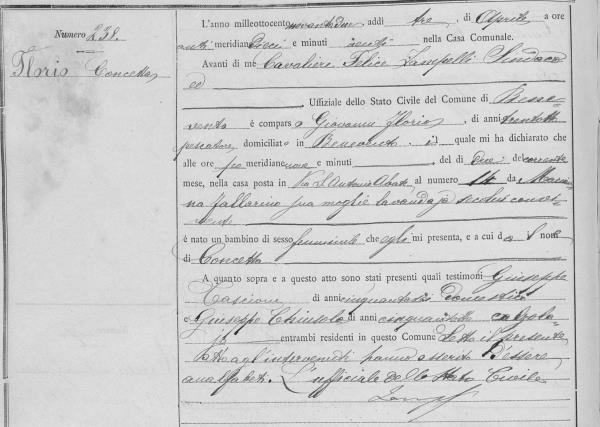 Numero 238.
Florio Concetta
L'anno milleottocentonovantadue addì tre, di Aprile a ore
anti meridiane dieci e minuti venti nella Casa Comunale.
Avanti di me Cavaliere Felice Zampelli Sindaco
ed
Uffiziale dello Stato Civile del Comune di Bene-
vento è comparso Giovanni Florio, di anni trentotto
pescatore domiciliato in Benevento il quale mi ha dichiarato
che alle ore pomeridiane e minuti del dì due del corrente
mese, nella casa posta in Via S. Antonio Abate al numero 14 da
sua moglie lavandaja seco lui convi-
vente
è nato un bambino di sesso femminile che egli mi presenta, e a cui dà il nome
di Concetta
A quanto sopra e a questo atto sono stati presenti quali testimoni Giuseppe
Cascione di anni domestico
e Giuseppe di anni calzola-
jo entrambi residenti in questo Comune Letto il presente
atto agl'intervenuti hanno asserito d'essere
analfabeti. L'uffiziale dello Stato Civile